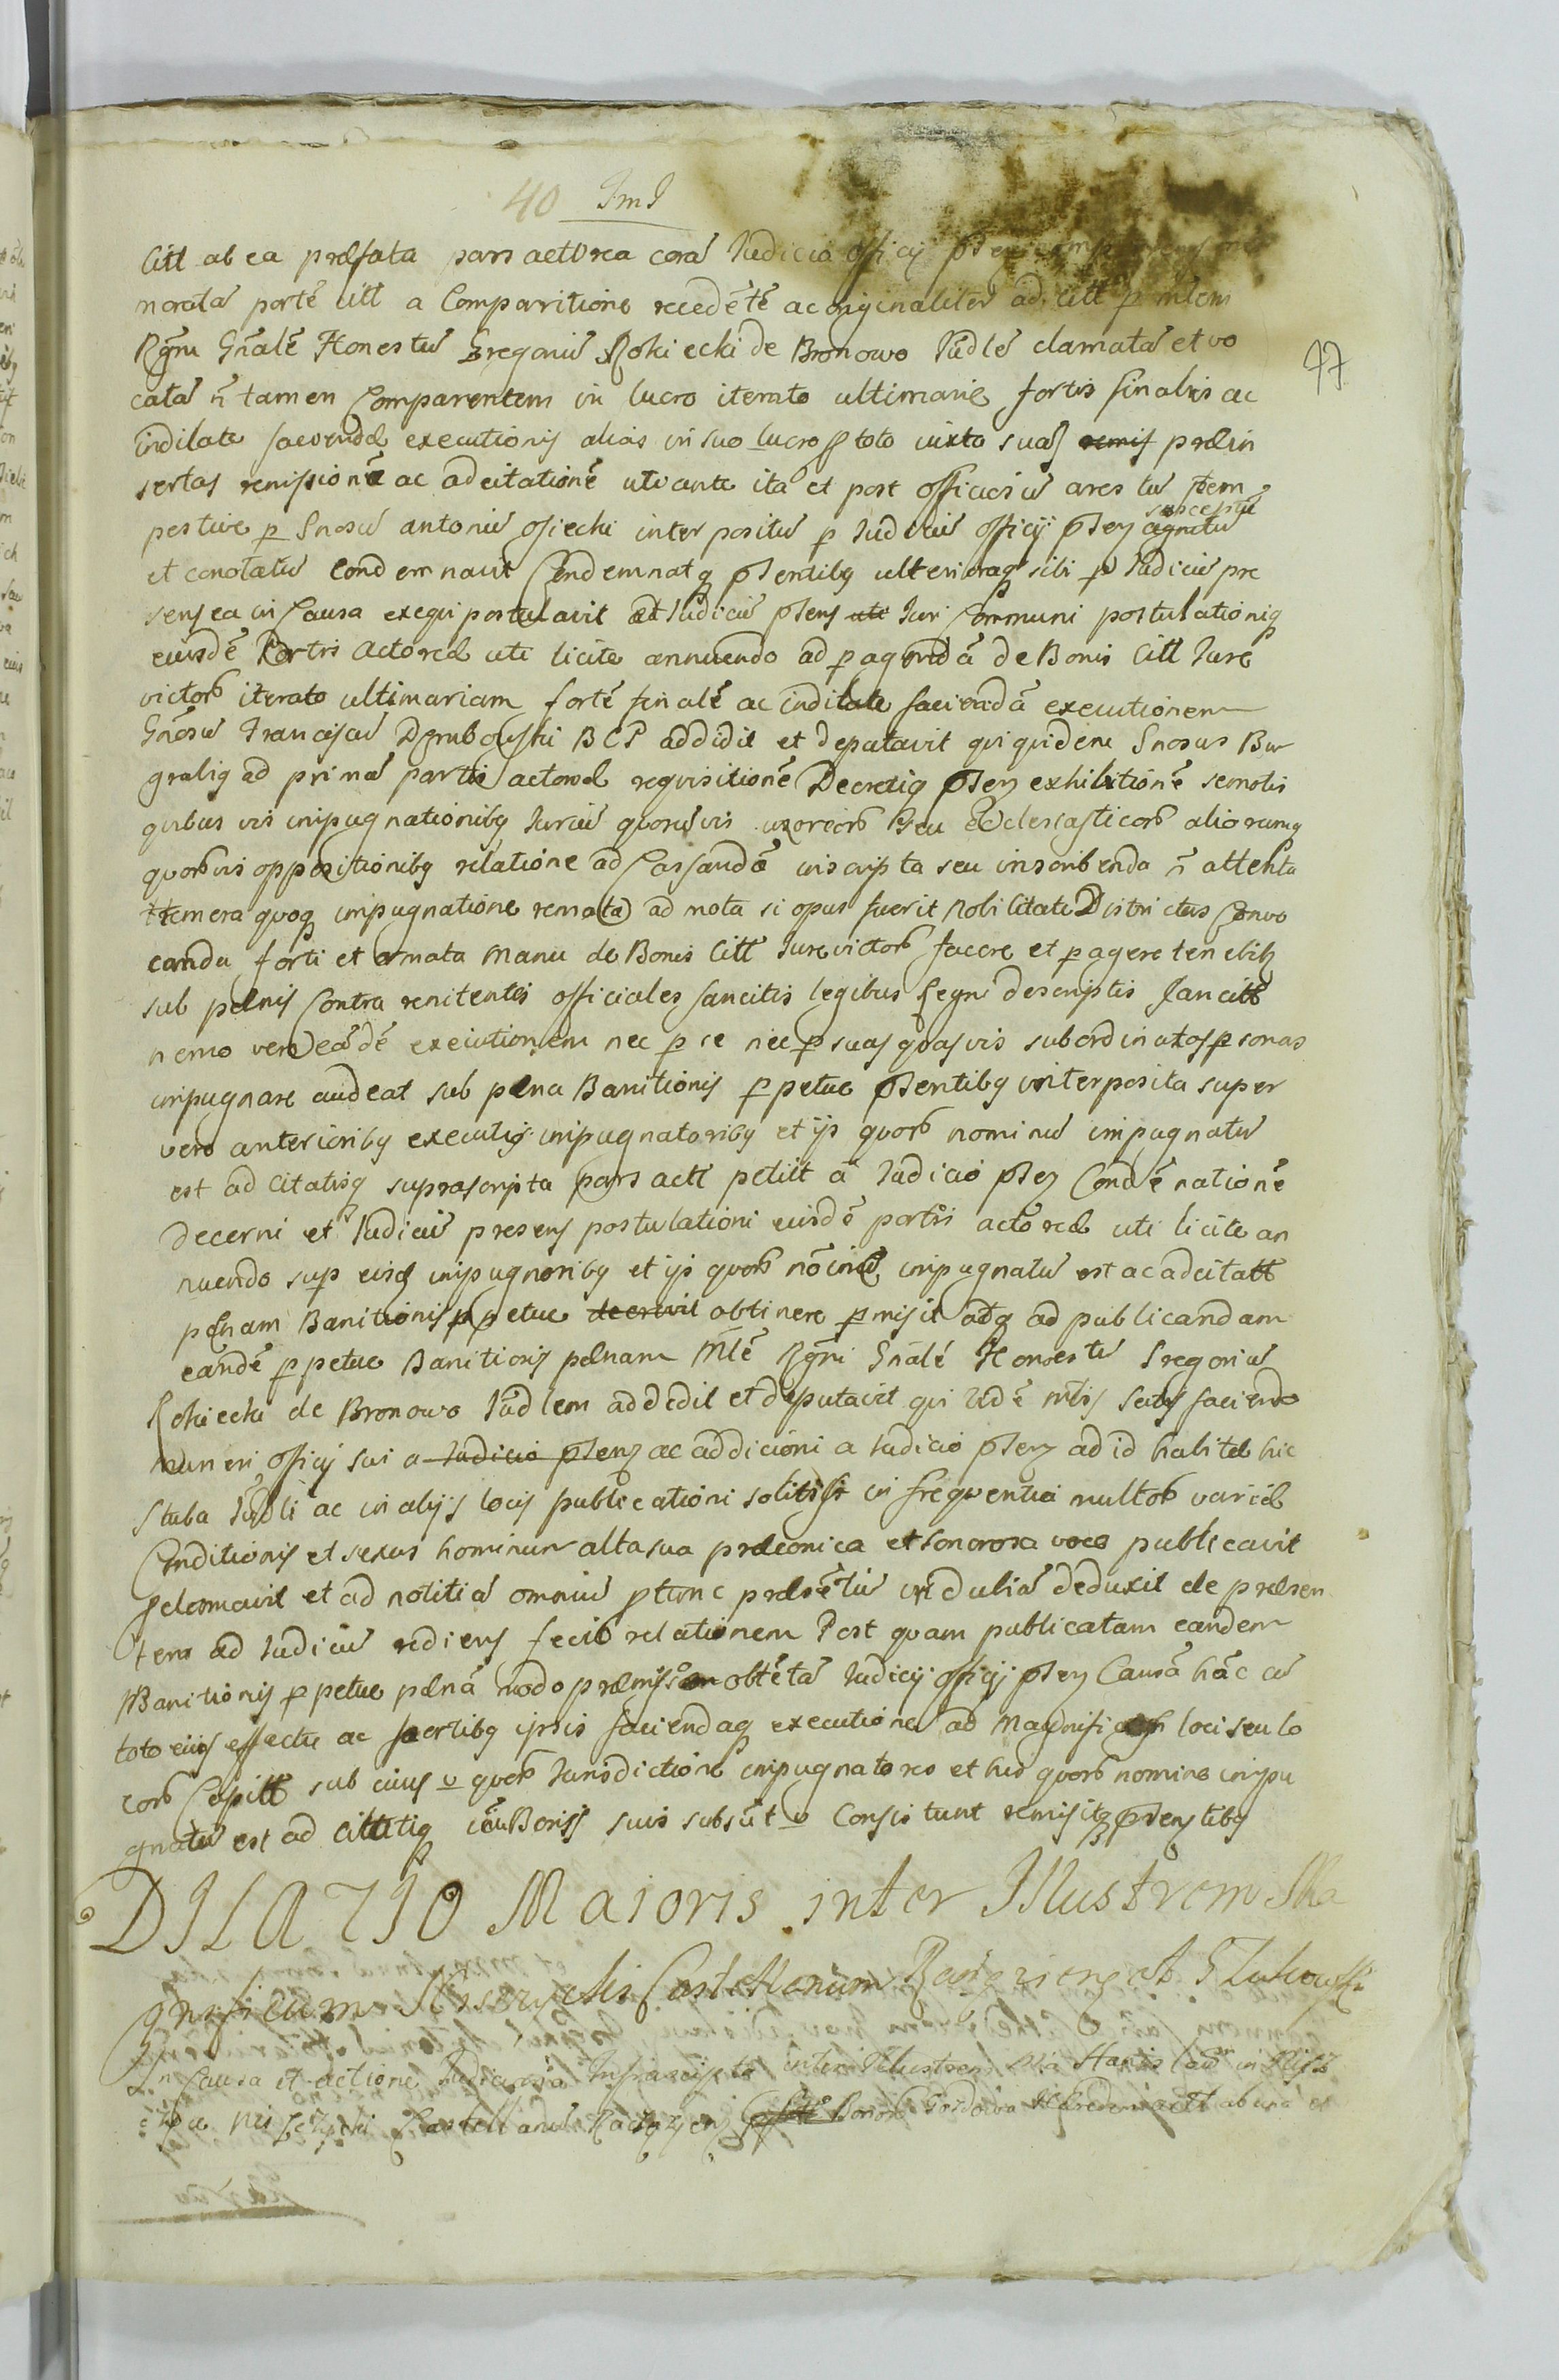 40 Iml
77
Citt ab ea præfata pars actorea corã Iudicio officij pñtj
moratã partẽ citt a Comparitione recedẽtẽ ac originaliter ad citt p
Rgñi Gñalẽ Honestũ Gregoriũ Rokiecki de Bronowo Iũdlẽ clamatã et vo
catã ñ tamen Comparentem in lucro iterato ultimariæ fortis finalis ac
indilate faciendæ executionis alias in suo lucro toto iuxta suas remis præin
sertas remissionẽ ac adcitationẽ uti ante ita et post officiosũ arestũ tem
pestive p Gnosũ antoniũ Osiecki interpositũ p Iudiciũ officij pñtj susceptũ agnatũ
et conotatũ Condemnavit Condemnatq pñtibq ulterioraq sibi p Iudiciũ pre
sens ea in Causa exequi postulavit et Iudiciũ pñs uti Iuri Communi postulationiq
eiusdẽ Partis actoreæ uti licite annuendo ad pagendã de Bonis Citt Iure
victorũ iterato ultimariam fortẽ finalẽ ac indilate faciendã executionem
Gnosũ Franciscũ Dembowski BCP addidit et deputavit qui quidem Gnosus Bur
grabiq ad primã partis actoreæ requisitionẽ Decretiq pñtj exhibitionẽ semotis
quibusvis impugnationibq Iuriũ quorũvis uxoreorũ seu Ecclesiasticorũ aliorumq
quorũvis oppositionibq relatione ad Cassandã inscripta seu inscribenda ñ attenta
temera quoq impugnatione remota ad mota si opus fuerit Nobilitate Districtus Convo
canda forti et armata manu de Bonis Citt Iurevictorũ facere et pagere tenebit
sub pænis Contra renitentes officiales sancitis legibus Regni descriptis sancitũ
nemo vero eãdẽ executionem nec p se nec p suas quasvis subordinatas psonas
impugnare audeat sub pæna Banitionis ppetuæ pñtibq interposita super
vero anterioribq executis impugnatoribq et ijs quorũ nominẽ impugnatũ
est ad citatisq suprascripta pars actt petiit a Iudicio pñtj Condẽnationẽ
decerni et Iudiciũ presens postulationi eiusdẽ partis actoreæ uti licite an
nuendo sup eisq impugnoribq et ijs quorũ nõinẽ impugnatũ est ac adcitatt
pænam Banitionis ppetuæ decrevit obtinere pmisit adq ad publicandam
eandẽ ppetuæ Banitionis pænam Mlẽ Rgñi Gñalẽ Honestũ Gregoriũ
Rokiecki de Bronowo Iũdlem addidit et deputavit qui idẽ mlis satis faciendo
muneri officij sui a Iudicio pñtj ac addicioni a Iudicio pñtj ad id habitæ hic
Stuba Iudli ac in alijs locis publicationi solitis in frequentia multorũ variæ
Conditionis et sexus hominum alta sua præconica et sonorosa voce publicavit
pclamavit et ad notitiã omniũ ptunc præsẽtiũ indubiã deduxit de præsen
tem ad Iudiciũ rediens fecit relationem Post quam publicatam eandem
Banitionis ppetuæ pænã modo præmisso obtẽtã Iudicij officij pñtj Causã hãc cũ
toto eius effectu ac partibq ipsis faciendaq executione ad Magnific loci seu lo
corũ Capitt sub cuius v quorũ Iurisdictione impugnatores et hic quorũ nomine impu
gnatũ est ad Cittitiq cũ Bonis suis subsũt v Consistunt remisitq pñtibq
DILATIO Maioris inter Illustrem Ma
gnificum Niszczycki Castellanum Raciązienz et G Zukowski
In Causa et actione Iudiciaria Infrascripta inter Illustrem Stanislaũ in Niszcz
Niszczycki Castellanũ Raciązienz Bonorũ Gozdowa Heredem actt ab una et